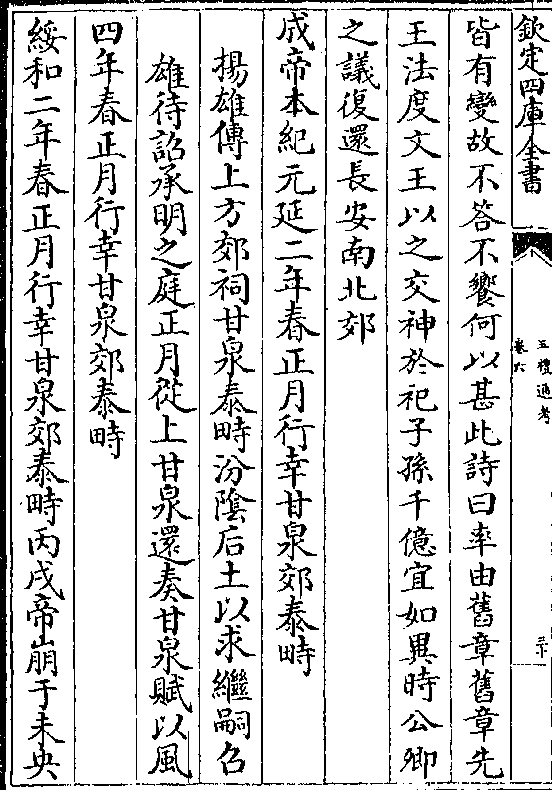 欽定四庫全書
五禮通考
卷六
三十
皆有變故不答不饗何以甚此詩曰率由舊章舊章先
王法度文王以之交神於祀子孫千億宜如異時公卿
之議復還長安南北郊
成帝本紀元延二年春正月行幸甘泉郊泰畤
揚雄傳上方郊祠甘泉泰畤汾隂后土以求繼嗣召
雄待詔承明之庭正月從上甘泉還奏甘泉賦以風
四年春正月行幸甘泉郊泰畤
綏和二年春正月行幸甘泉郊泰畤丙戌帝崩于未央